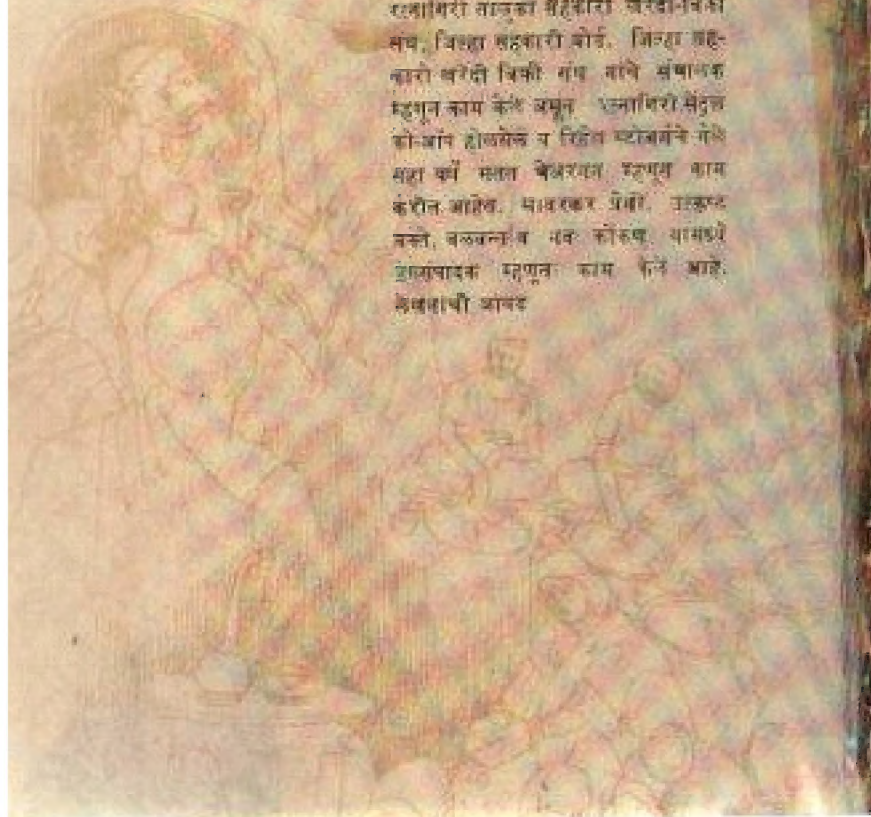 रत्नागिरी तालुका सहकारी खरेदी-विक्री
संघ, जिल्हा सहकारी बोर्ड, जिल्हा सह-
कारी खरेदी विक्री संघ यांचे संचालक
म्हणून काम केले असून रत्नागिरी सेंट्रल
को-ऑप होलसेल व रिटेल स्टोअर्सचे गेले
सहा वर्षे सतत चेअरमन म्हणून काम
करीत आहेत. सावरकर प्रेमी. उत्कृष्ट
वक्ते, बलवन्त व नव कोकण यामध्ये
उपसंपादक म्हणून काम केले आहे.
लेखनाची आवड